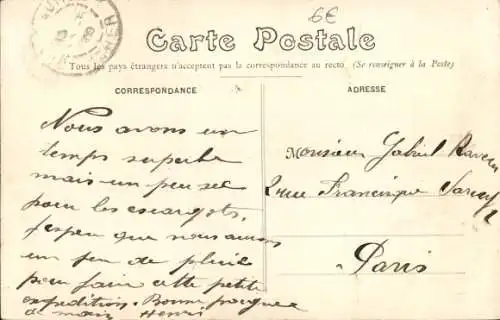 6€
Carte Postale
Tous les pays étrangers n'acceptent pas la correspondance au recto (Se renseigner à la Poste)
CORRESPONDANCE
Nous avons un
temps superbe
mais un peu sec
pour les escargots,
j'espère que nous aurons
un peu de pluie
pour faire cette petite
expédition. Bonne poignée
de main Henri
ADRESSE
Monsieur Gabriel
2 rue Francisque Sarcey
Paris